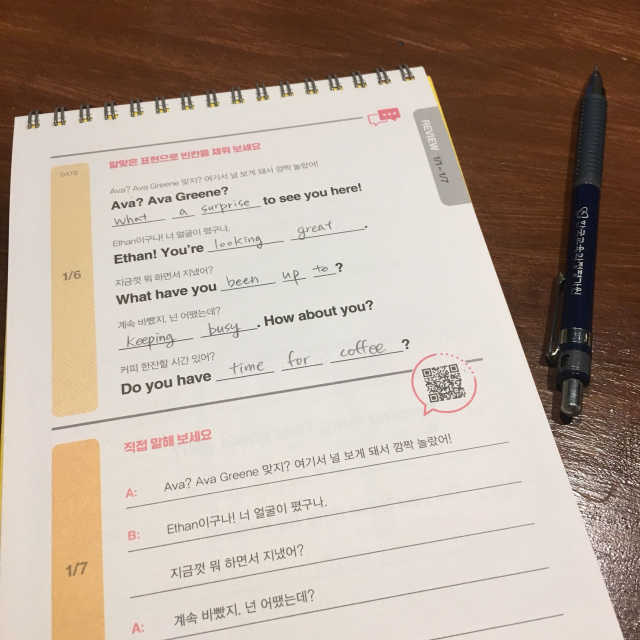 REVIEW 1/1 - 1/7
DATE
알맞은 표현으로 빈칸을 채워 보세요
1/6
Ava? Ava Greene 맞지? 여기서 널 보게 돼서 깜짝 놀랐어!
Ava? Ava Greene?
what a surprise to see you here!
Ethan이구나! 너 얼굴이 폈구나.
Ethan! You're looking great.
지금껏 뭐 하면서 지냈어?
What have you been up to?
계속 바빴지. 넌 어땠는데?
keeping busy. How about you?
커피 한잔할 시간 있어?
Do you have time for coffee?
1/7
직접 말해 보세요
A: Ava? Ava Greene 맞지? 여기서 널 보게 돼서 깜짝 놀랐어!
B: Ethan이구나! 너 얼굴이 폈구나.
지금껏 뭐 하면서 지냈어?
A: 계속 바빴지. 넌 어땠는데?